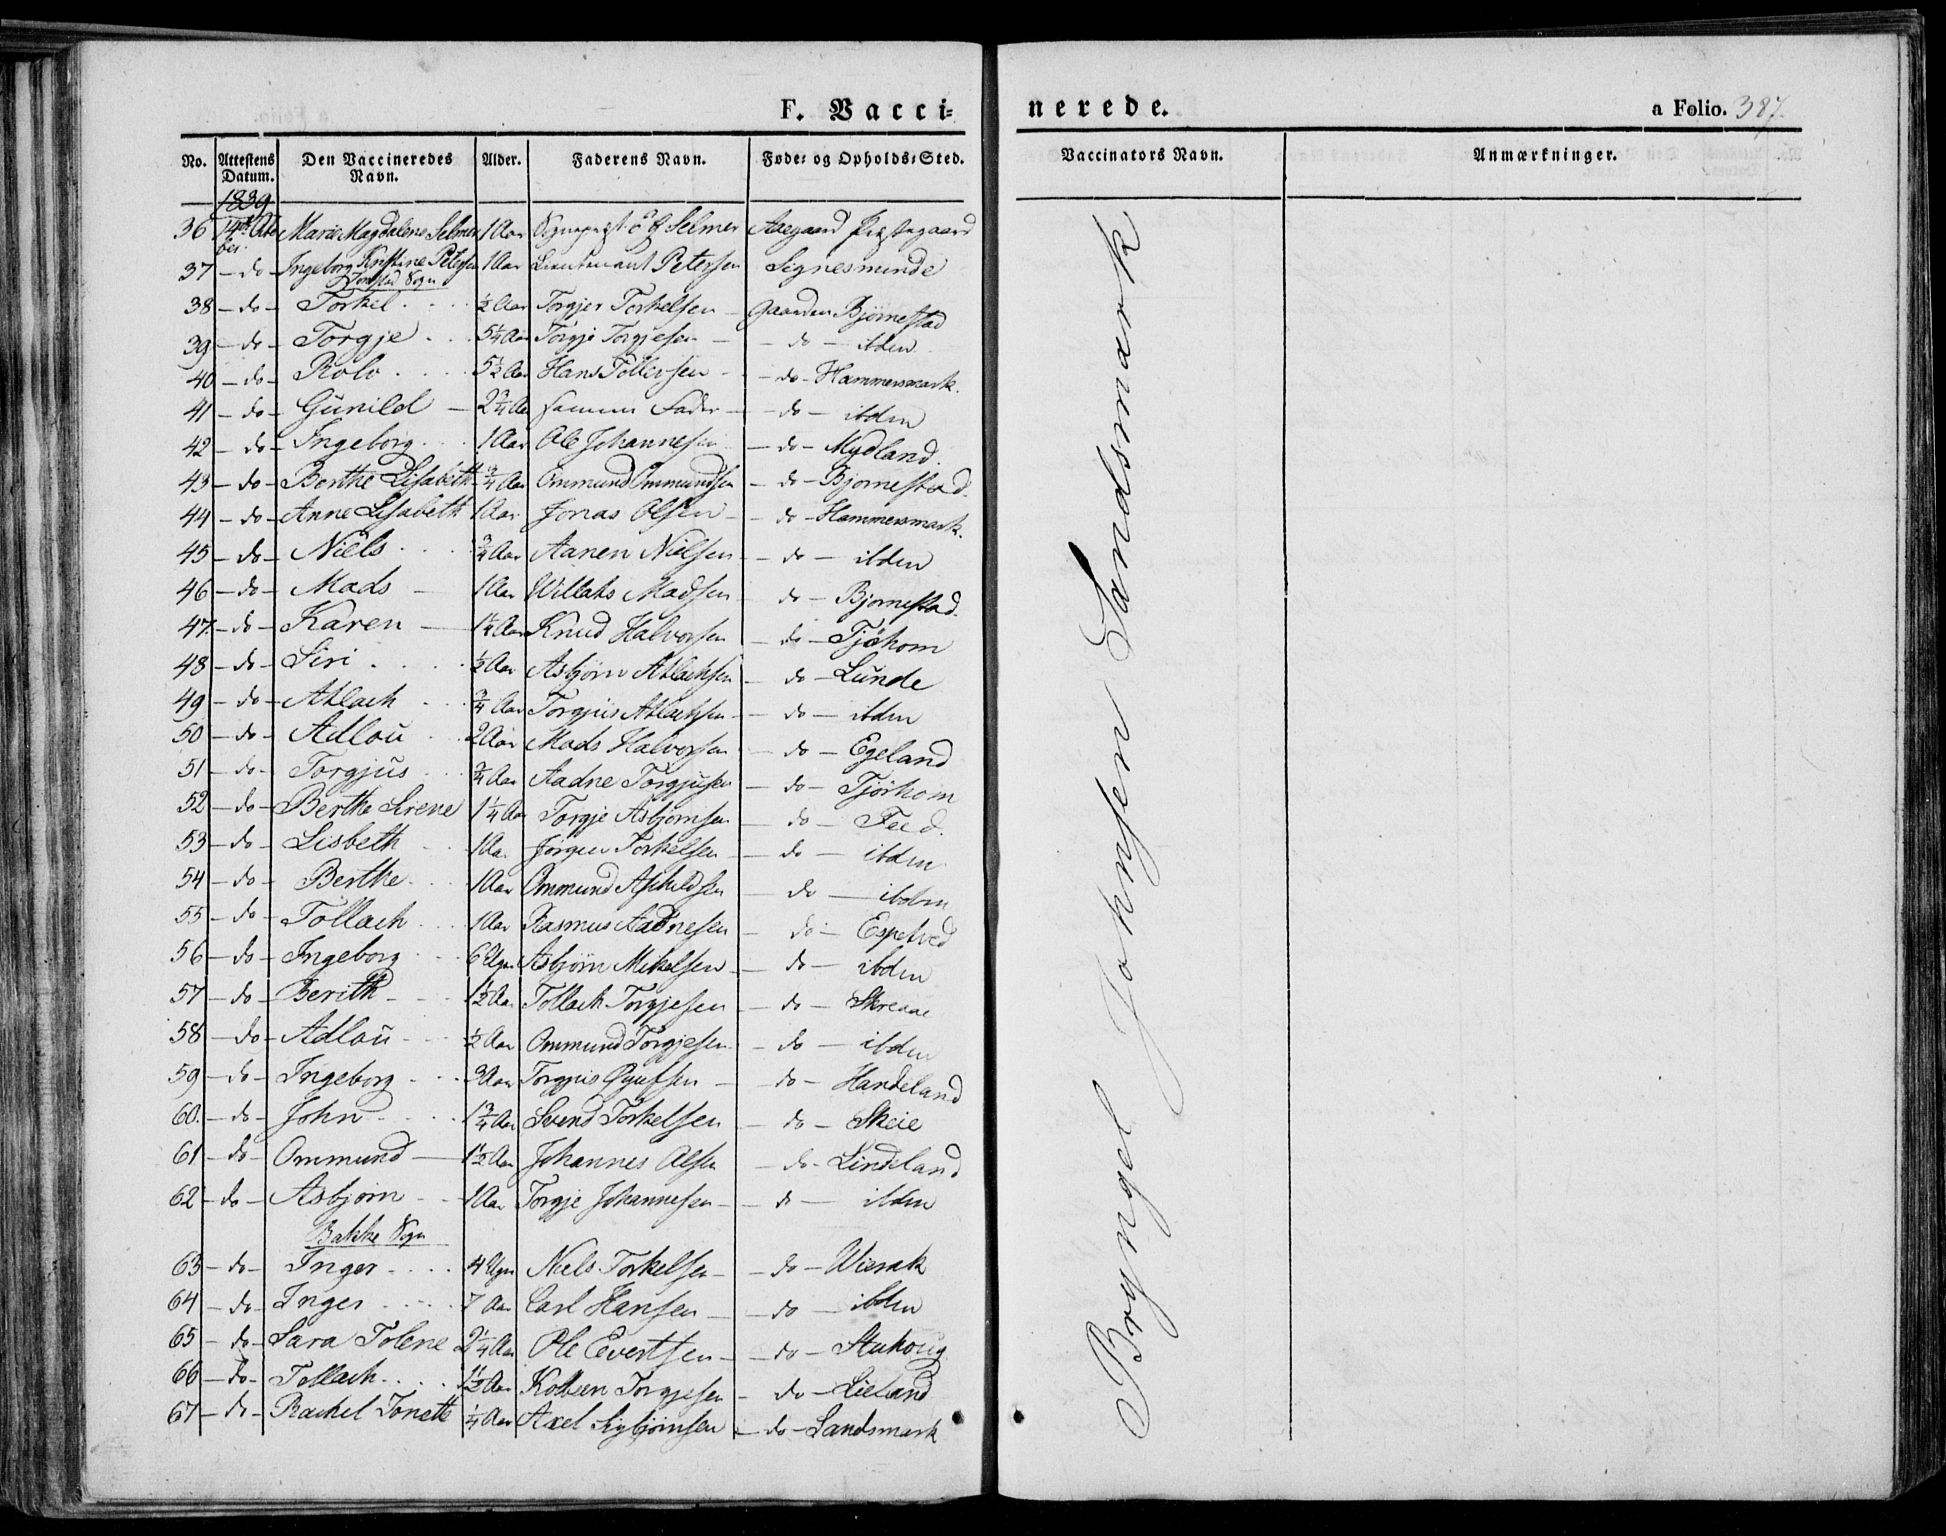 F. Vacci-
nerede.
a Folio. 387.
No. Attestens Datum. Den Vaccineredes Navn. Alder. Faderens Navn. Føde- og Opholds-Sted. Vaccinators Navn. Anmærkninger.
1839
36 14de Octo ber Marie Magdalene Selmer 1 Aar Selmer Aaegaard Præstegaard
37 - do - Ingeborg Kristine Petersen 1 Aar Lieutenant Petersen Signesminde
Tonstad Sogn
38 - do - Torkel ½ Aar Torgjer Torkelsen Gaarden Bjørnestad
39 - do - Torgje 5¼ Aar Torgje Torgjesen - do - ibden
40 - do - Rolv 5½ Aar Hans Tollevsen - do - Hammersmark.
41 - do - Gunild 2¾ Aar samme Fader - do - ibden
42 - do - Ingeborg 1 Aar Ole Johannesen - do - Mydland.
43 - do - Berthe Lisabeth ¾ Aar Ommund Ommundsen - do - Bjørnestad.
44 - do - Anne Lisabeth 1 Aar Jonas Olsen - do - Hammersmark.
45 - do - Niels ¾ Aar Aanen Nielsen - do - ibden
46 - do - Mads 1 Aar Willaks Madsen - do - Bjornestad.
47 - do - Karen 1¼ Aar Knud Halvorsen - do - Tjøhom
48 - do - Siri ½ Aar Asbjørn Atlaksen - do - Lunde
49 - do - Atlach ¾ Aar Torgjus Atlaksen - do - ibden
50 - do - Adlou 2 Aar Mads Halvorsen - do - Egeland
51 - do - Torgjus ¾ Aar Aadne Torgjusen - do - Tjørhom
52 - do - Berthe Sirene 1¼ Aar Torgje Asbjørnsen - do - Feed.
53 - do - Lisbeth 1 Aar Jørgen Torkelsen - do - ibden
54 - do - Berthe 1 Aar Ommund Askildsen - do - ibden
55 - do - Tollach 1 Aar Rasmus Aadnesen - do - Espetved
56 - do - Ingeborg 6 Ugr. Asbjørn Mikelsen - do - ibden
57 - do - Berith 1½ Aar Tollach Torgjesen - do - Skreaae
58 - do - Adlou ½ Aar Ommund Torgjesen - do - ibden
59 - do - Ingeborg 3 Aar Torgjus Øyufsen - do - Handeland
60. - do - John 1¾ Aar Svend Torkelsen - do - Skeie
61 - do - Ommund 1½ Aar Johannes Olsen - do - Lindeland
62 - do - Asbjørn 1 Aar Torgje Johannesen - do - ibden
Bakke Sogn
63 - do - Inger 4 Ugr Niels Torkelsen - do - Wierak
64 - do - Inger 7 Aar Carl Hansen - do - ibden
65 - do - Sara Tolene 2¼ Aar Ole Evertsen - do - Stakoug
66 - do - Tollach 1½ Aar Kolbeen Torgjesen - do - Lieland
67 - do - Rackel Tonette ¼ Aar Axel Sigbjørnsen - do - Sandsmark
Bryngel Johnsen Sandsmark